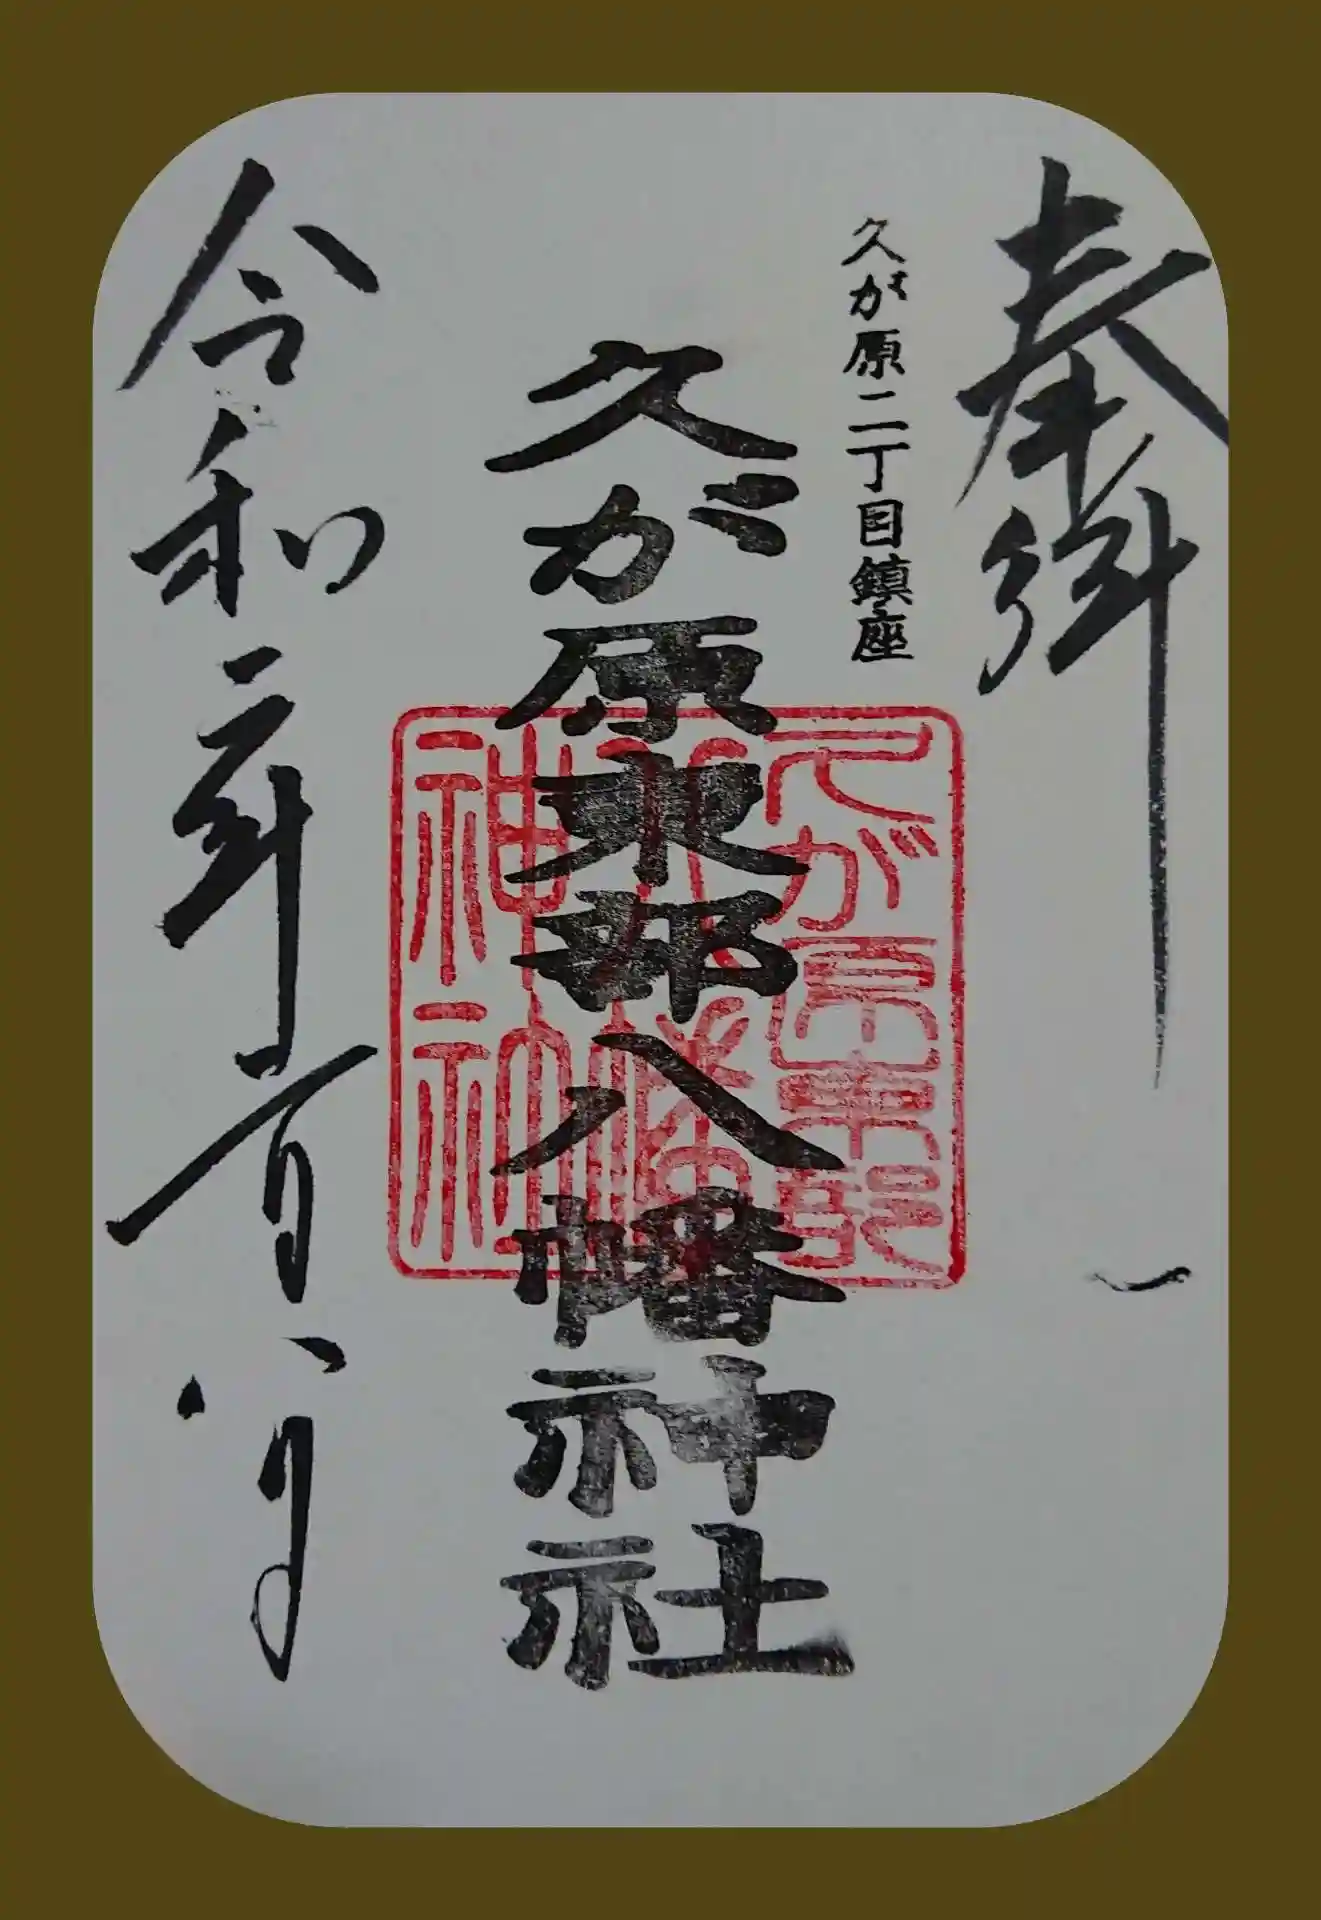 奉拝
久が原二丁目鎮座
久が原東部八幡神社
久が原東部
八幡
神社
令和二年一月八日